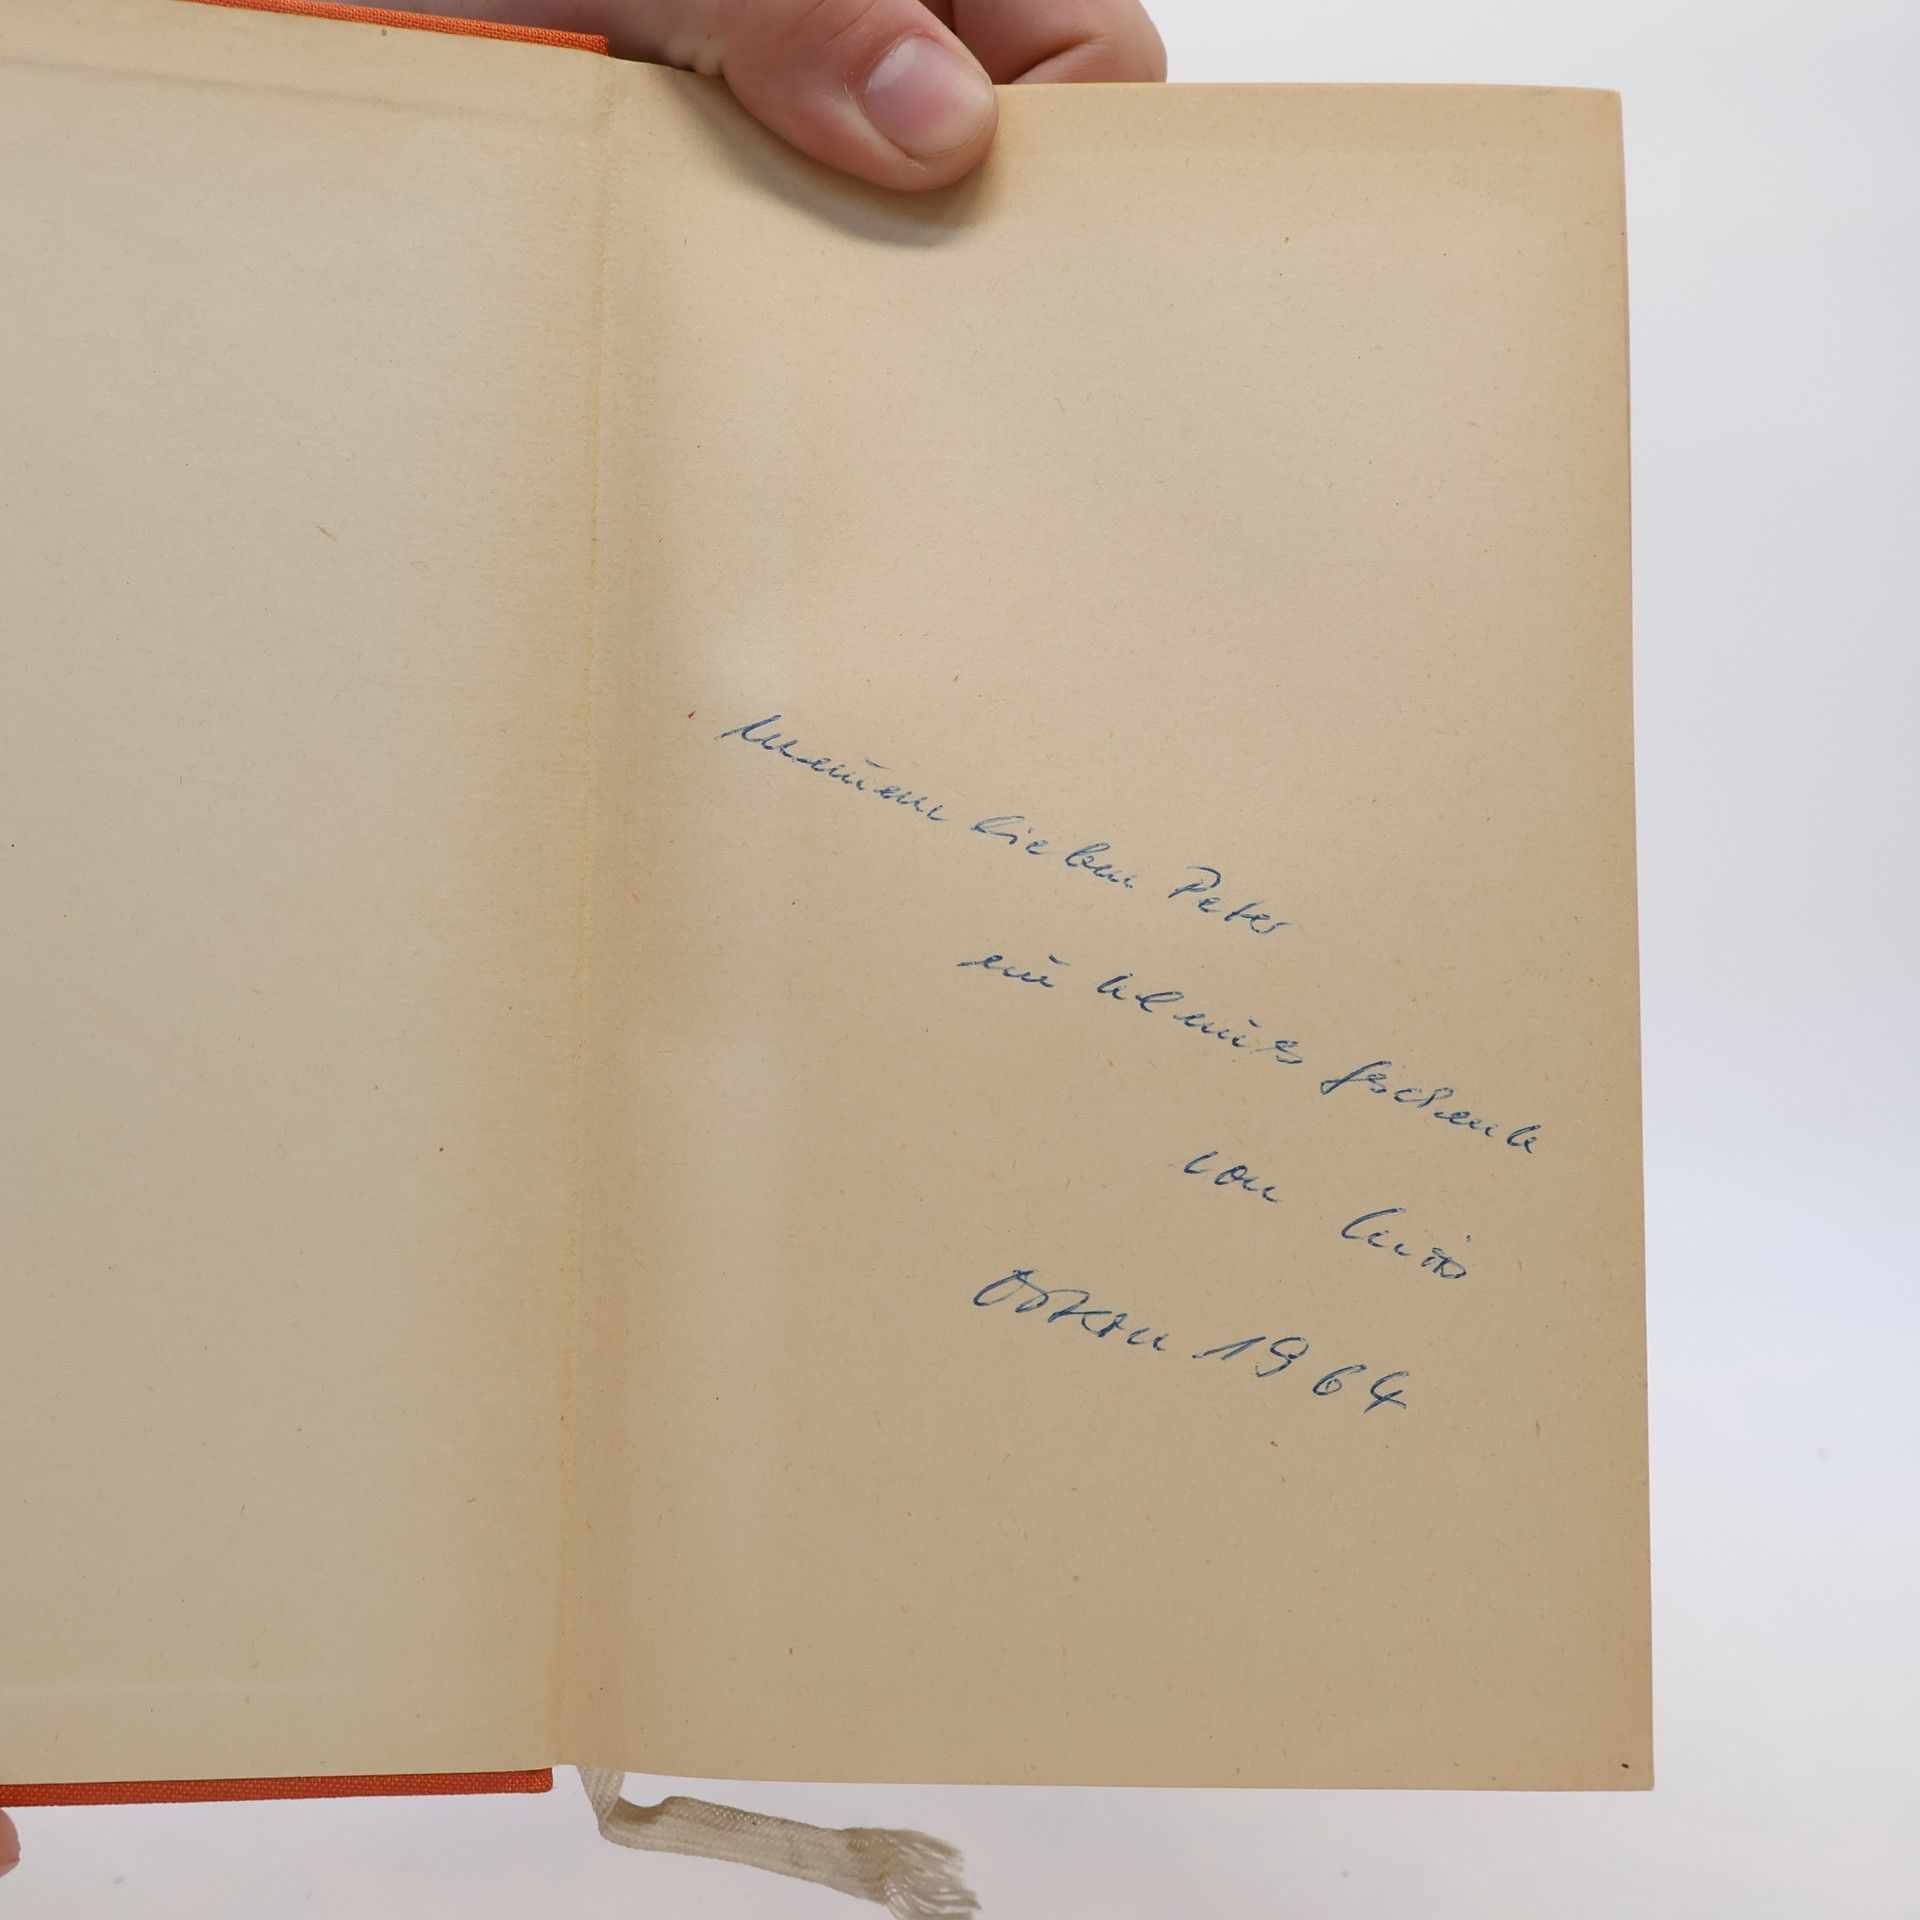 Meinem lieben Peter
ein kleines Geschenk
von
Ostern 1964